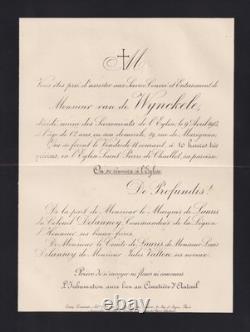 M
Vous êtes prié d'assister aux Service, Convoi et Enterrement de
Monsieur van de Wynckele,
décédé, muni des Sacrements de l'Église, le 9 Avril
à l'âge de ans, en son domicile, rue de Marignan;
Qui se feront le Vendredi 11 courant, à 10 heures très
précises, en l'Église Saint Pierre de Chaillot, sa paroisse.
On se réunira à l'Église.
De Profundis!
De la part de Monsieur le Marquis de Lauris
du Colonel Delannoy Commandeur de la Légion
d'Honneur, ses beaux frères,
De Monsieur le Comte de Lauris de Monsieur Louis
Delannoy de Monsieur Jules Vatton ses neveux.
Prière de n'envoyer ni fleurs ni couronnes
L'Inhumation aura lieu au Cimetière d'Auteuil